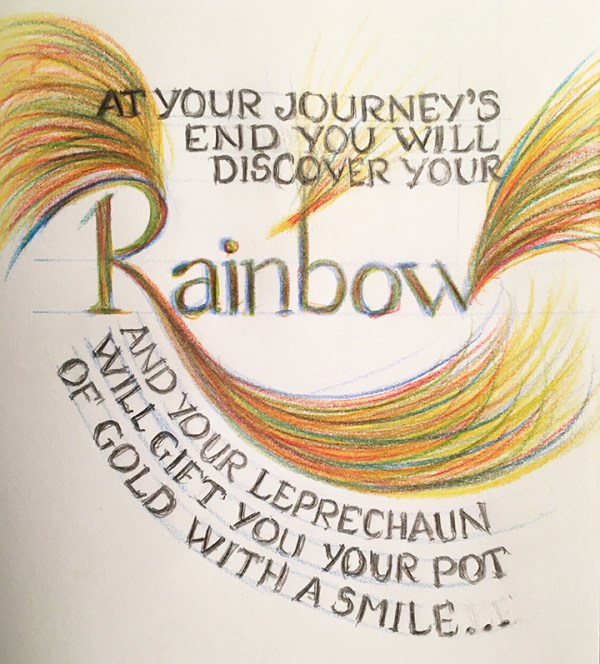 AT YOUR JOURNEY'S
END YOU WILL
DISCOVER YOUR
Rainbow
AND YOUR LEPRECHAUN
WILL GIFT YOU YOUR POT
OF GOLD WITH A SMILE...